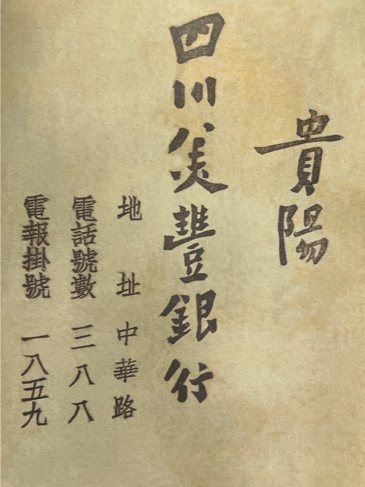 貴陽
四川美豐銀行
地址中華路
電話號數三八八
電報掛號一八五九